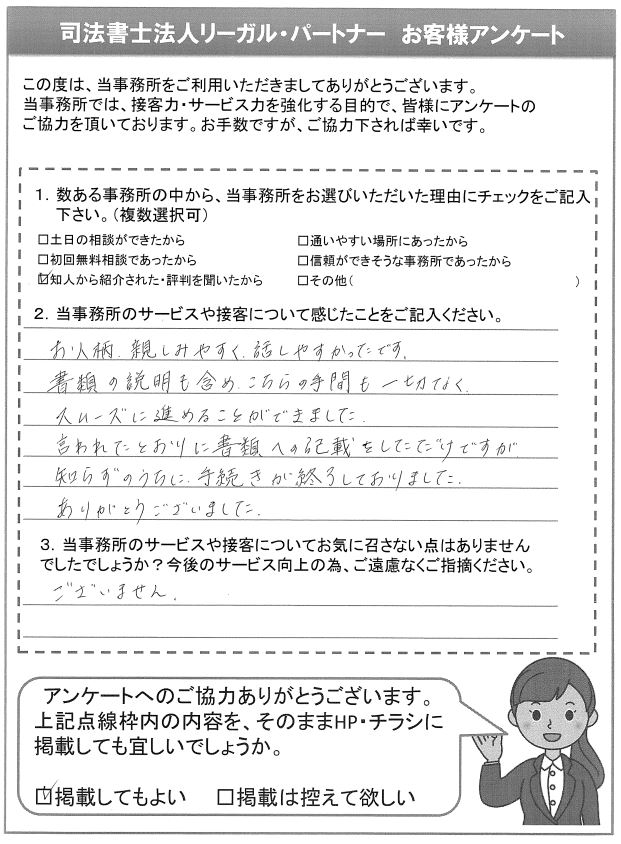 司法書士法人リーガル・パートナー お客様アンケート
この度は、当事務所をご利用いただきましてありがとうございます。
当事務所では、接客力・サービス力を強化する目的で、皆様にアンケートの
ご協力を頂いております。お手数ですが、ご協力下されば幸いです。
1．数ある事務所の中から、当事務所をお選びいただいた理由にチェックをご記入
下さい。（複数選択可）
□土日の相談ができたから □通いやすい場所にあったから
□初回無料相談であったから □信頼ができそうな事務所であったから
☑知人から紹介された・評判を聞いたから □その他（ ）
2．当事務所のサービスや接客について感じたことをご記入ください。
お人柄、親しみやすく、話しやすかったです。
書類の説明も含め、こちらの手間も一切なく、
スムーズに進めることができました。
言われたとおりに書類への記載をしただけですが
知らずのうちに、手続きが終了しておりました。
ありがとうございました。
3．当事務所のサービスや接客についてお気に召さない点はありません
でしたでしょうか？今後のサービス向上の為、ご遠慮なくご指摘ください。
ございません。
アンケートへのご協力ありがとうございます。
上記点線枠内の内容を、そのままHP・チラシに
掲載しても宜しいでしょうか。
☑掲載してもよい □掲載は控えて欲しい